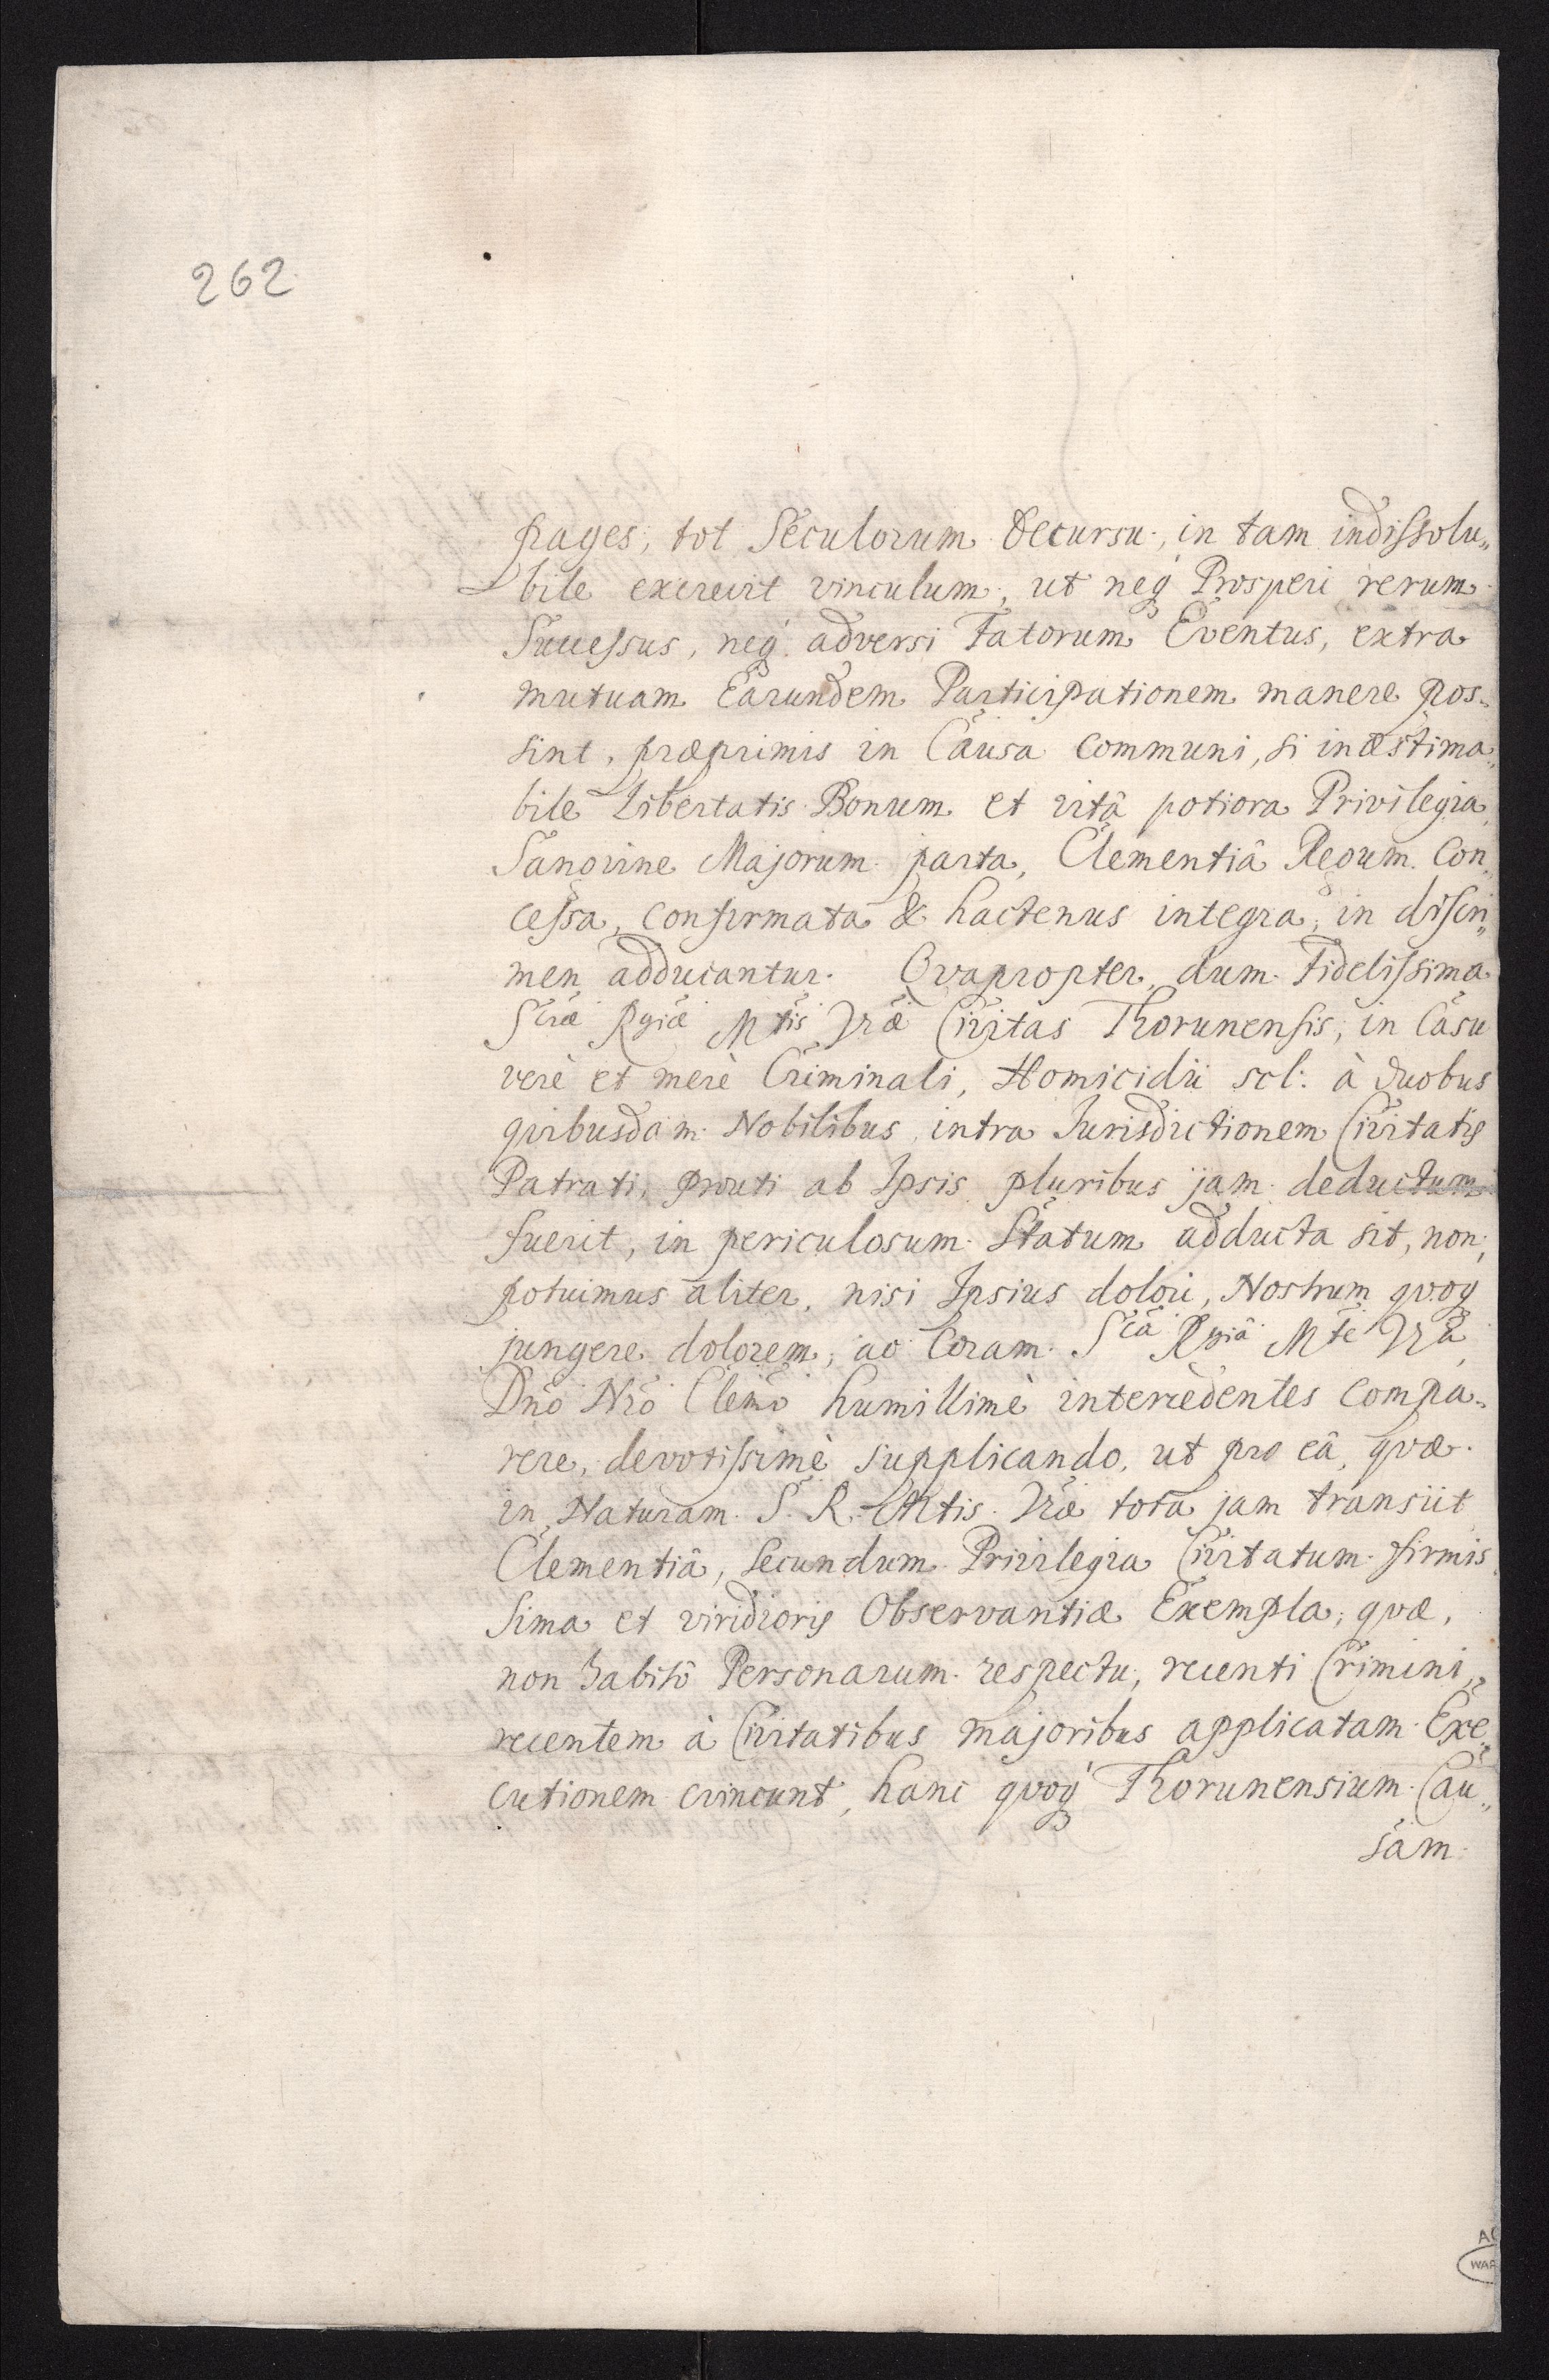 262
pages, tot Seculorum Decursu, in tam indissolu„
bile excrevit vinculum, ut neq́ Prosperi rerum
Successus, neq́ adversi Fatorum Eventus, extra
mutuam Earundem Participationem manere pos„
sint, præprimis in Causa communi, si inæstima„
bile Libertatis Bonum et vitâ potiora Privilegia,
Sangvine Majorum parta, Clementiâ Regum Con„
cessa, confirmata & hactenus integra, in discri„
men adducantur. Qvapropter, dum Fidelissima
Scræ Rgiæ Mtis Vræ Civitas Thorunensis, in Casu
verè et merè Criminali, Homicidii scl: à duobus
qvibusdam Nobilibus, intra Jurisdictionem Civitatis
Patrati, prouti ab Ipsis pluribus jam deductum
fuerit, in periculosum Statum adducta sit, non
potuimus aliter, nisi Ipsius dolori, Nostrum qvoq́
jungere dolorem, ac Coram Scâ Rgiâ Mte Vrâ,
Dno Nro Clemo humillimè intercedentes compa„
rere, devotissimè supplicando, ut pro eâ, qvæ
in Naturam S. R. Mtis Vræ tota jam transiit
Clementiâ, secundum Privilegia Civitatum firmis
sima et viridioris Observantiæ Exempla, qvæ,
non habitô Personarum respectu, recenti Crimini,
recentem à Civitatibus majoribus applicatam Exe„
cutionem evincunt, hanc qvoq́ Thorunensium Cau„
sam